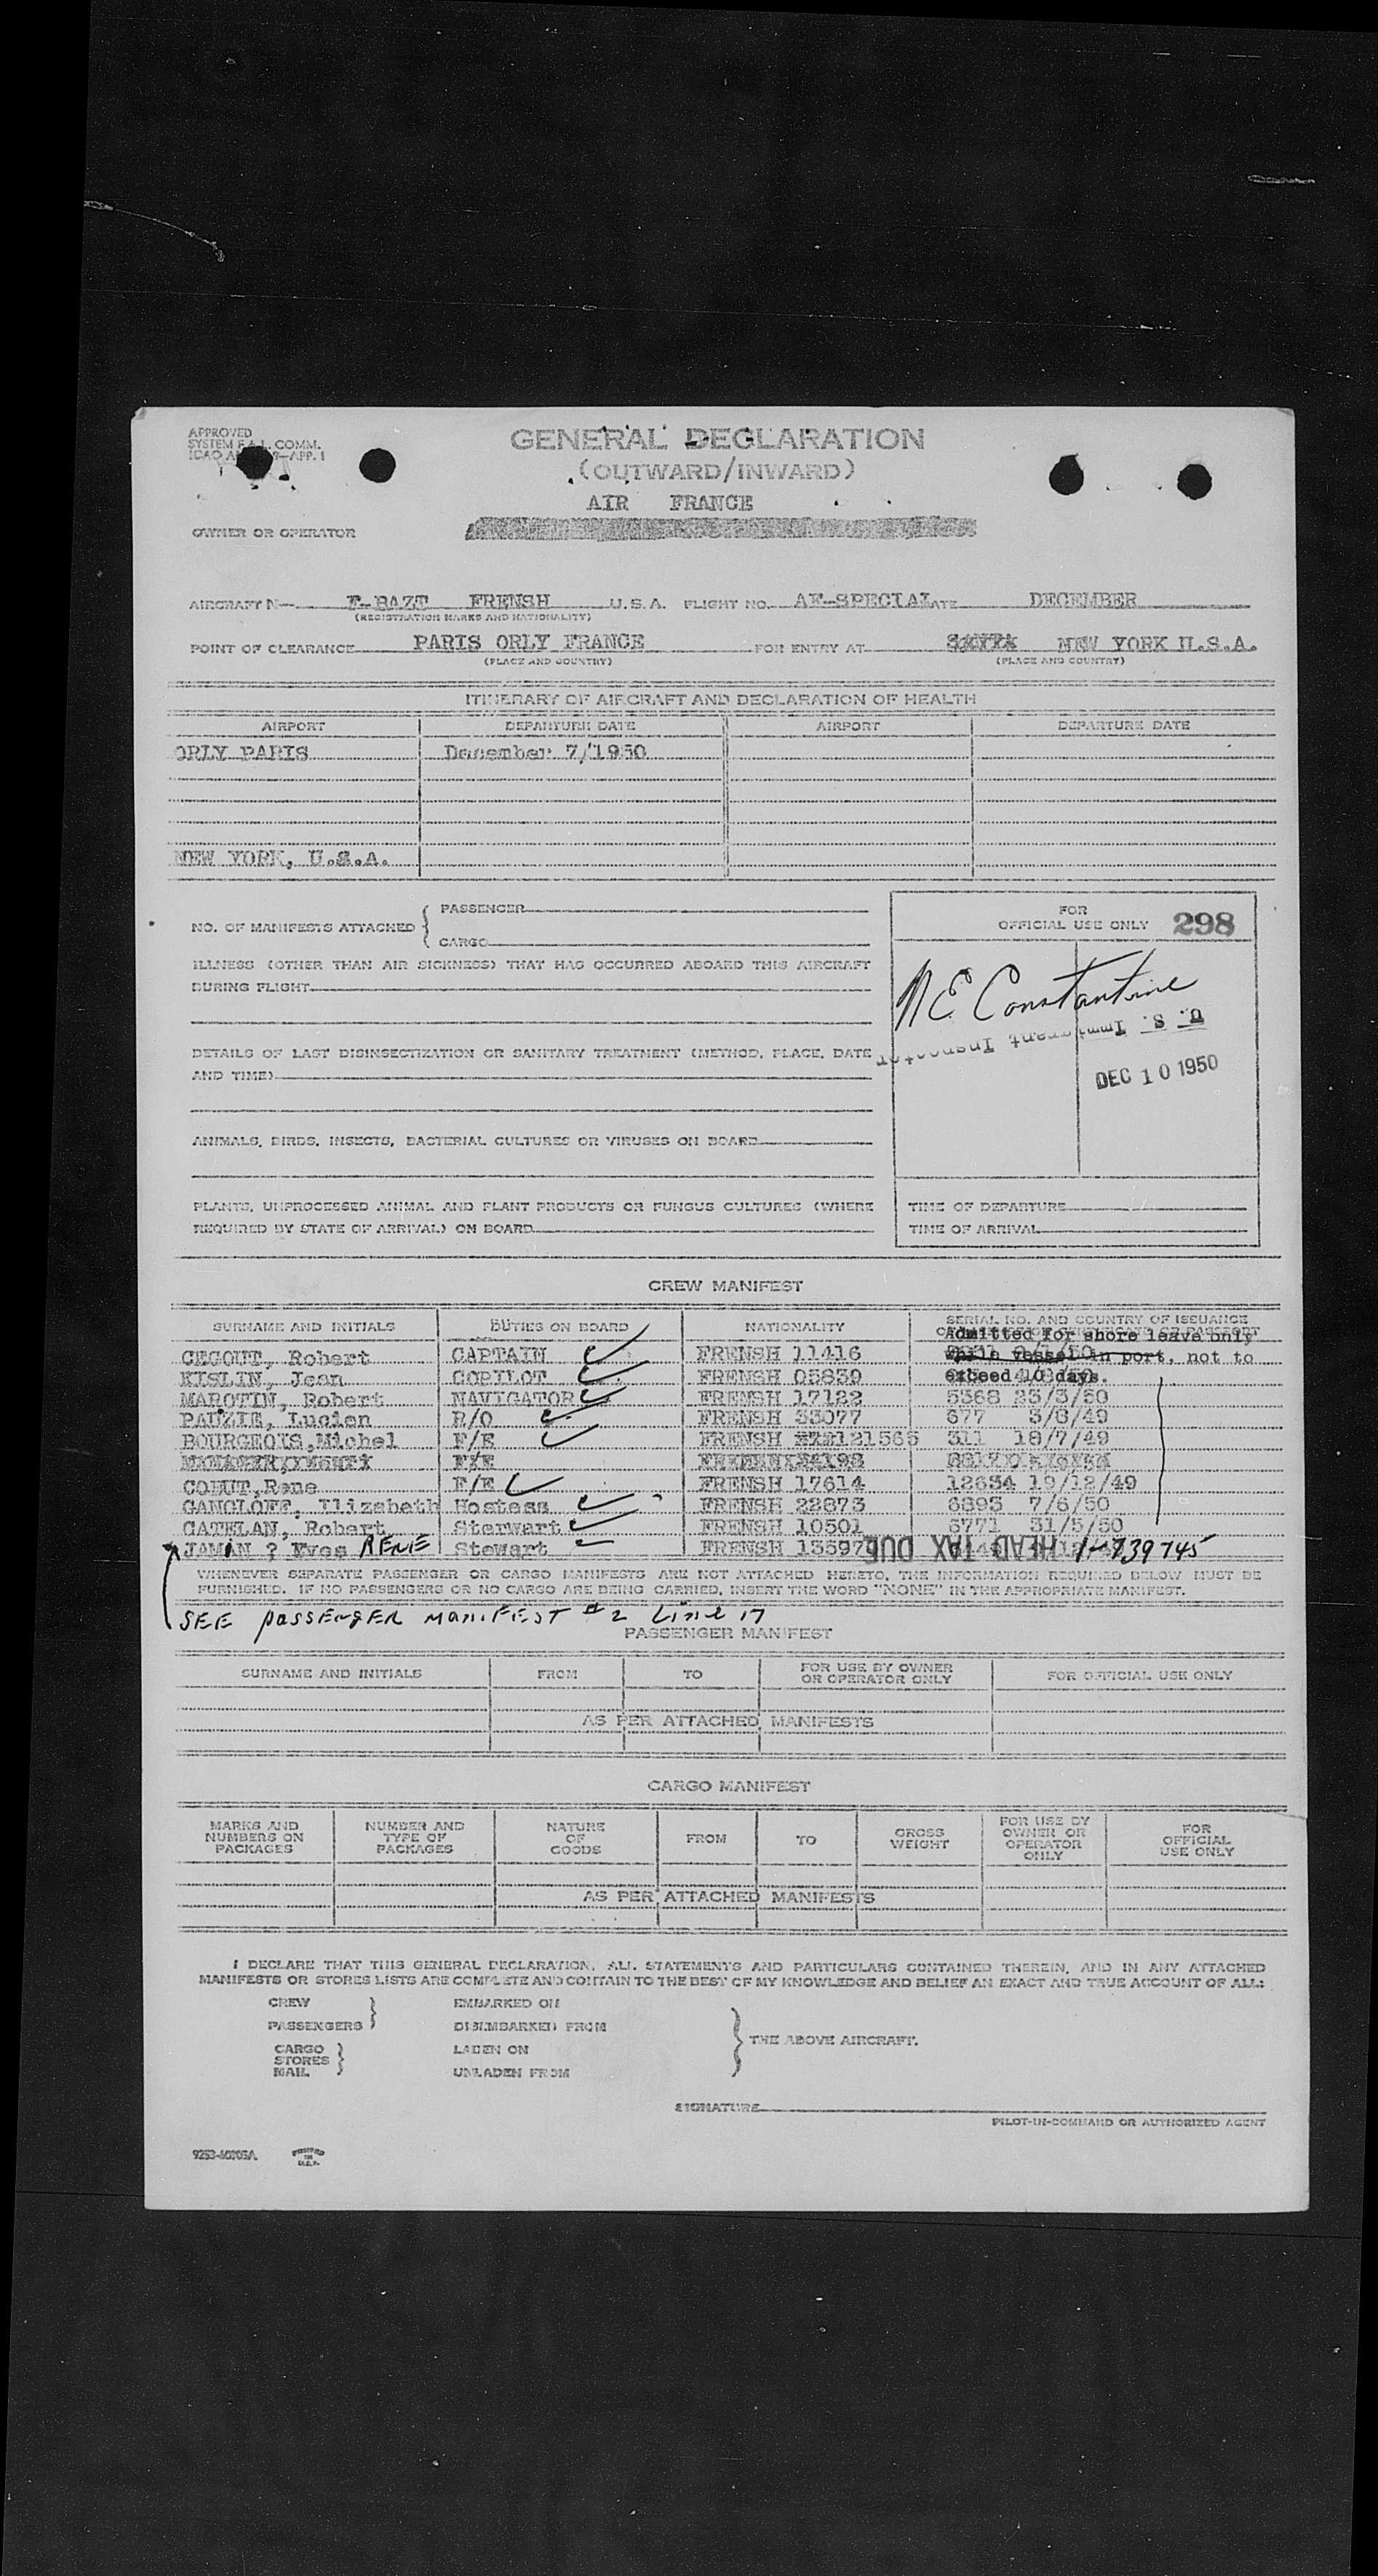 APPROVED
SYSTEM F.A.L. COMM.
GENERAL DECLARATION
(OUTWARD/INWARD)
AIR FRANCE
OWNER OR OPERATOR
AIRCRAFT N F-BAZT FRENSH U.S.A. FLIGHT NO. AF-SPECIAL DATE DECEMBER
(REGISTRATION MARKS AND NATIONALITY)
POINT OF CLEARANCE PARIS ORLY FRANCE FOR ENTRY AT NEW YORK U.S.A.
(PLACE AND COUNTRY) (PLACE AND COUNTRY)
ITINERARY OF AIRCRAFT AND DECLARATION OF HEALTH
AIRPORT DEPARTURE DATE AIRPORT DEPARTURE DATE
ORLY PARIS December 7/1950
NEW YORK, U.S.A.
NO. OF MANIFESTS ATTACHED { PASSENGER
CARGO
FOR
OFFICIAL USE ONLY 298
ILLNESS (OTHER THAN AIR SICKNESS) THAT HAS OCCURRED ABOARD THIS AIRCRAFT
DURING FLIGHT
N E Constantine
U. S. Immigrant Inspector
DEC 10 1950
DETAILS OF LAST DISINSECTIZATION OR SANITARY TREATMENT (METHOD, PLACE, DATE
AND TIME)
ANIMALS, BIRDS, INSECTS, BACTERIAL CULTURES OR VIRUSES ON BOARD
PLANTS, UNPROCESSED ANIMAL AND PLANT PRODUCTS OR FUNGUS CULTURES (WHERE
REQUIRED BY STATE OF ARRIVAL) ON BOARD
TIME OF DEPARTURE
TIME OF ARRIVAL
CREW MANIFEST
SURNAME AND INITIALS DUTIES ON BOARD NATIONALITY SERIAL NO. AND COUNTRY OF ISSUANCE
Admitted for shore leave only
while vessel in port, not to
exceed 10 days.
CEGOUT, Robert CAPTAIN FRENSH 11416
KISLIN, Jean COPILOT FRENSH 05839
MAROTIN, Robert NAVIGATOR FRENSH 17122 5368 23/3/50
PAUZIE, Lucien R/O FRENSH 33077 677 3/8/49
BOURGEOIS,Michel F/E FRENSH 121565 311 18/7/49
F/E
COHUT,Rene F/E FRENSH 17614 12634 19/12/49
GANGLOFF, Ilizabeth Hostess FRENSH 22873 6893 7/6/50
CATELAN, Robert Sterwart FRENSH 10501 6771 31/5/50
JAMIN ? Yves RENE Stewart FRENSH 13597 HEAD TAX DUE 1-739745
WHENEVER SEPARATE PASSENGER OR CARGO MANIFESTS ARE NOT ATTACHED HERETO, THE INFORMATION REQUIRED BELOW MUST BE
FURNISHED. IF NO PASSENGERS OR NO CARGO ARE BEING CARRIED, INSERT THE WORD "NONE" IN THE APPROPRIATE MANIFEST.
SEE PASSENGER MANIFEST #2 Line 17
PASSENGER MANIFEST
SURNAME AND INITIALS FROM TO FOR USE BY OWNER OR OPERATOR ONLY FOR OFFICIAL USE ONLY
AS PER ATTACHED MANIFESTS
CARGO MANIFEST
MARKS AND NUMBERS ON PACKAGES NUMBER AND TYPE OF PACKAGES NATURE OF GOODS FROM TO GROSS WEIGHT FOR USE BY OWNER OR OPERATOR ONLY FOR OFFICIAL USE ONLY
AS PER ATTACHED MANIFESTS
I DECLARE THAT THIS GENERAL DECLARATION, ALL STATEMENTS AND PARTICULARS CONTAINED THEREIN, AND IN ANY ATTACHED
MANIFESTS OR STORES LISTS ARE COMPLETE AND CONTAIN TO THE BEST OF MY KNOWLEDGE AND BELIEF AN EXACT AND TRUE ACCOUNT OF ALL:
CREW EMBARKED ON
PASSENGERS DISEMBARKED FROM
THE ABOVE AIRCRAFT.
CARGO LADEN ON
STORES
MAIL UNLADEN FROM
SIGNATURE
PILOT-IN-COMMAND OR AUTHORIZED AGENT
PRINTED
IN
U.S.A.